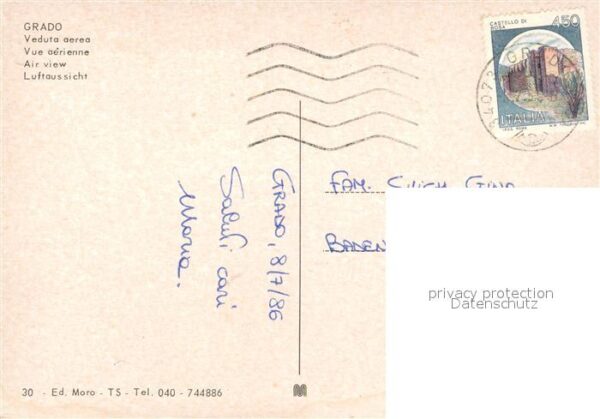 GRADO
Veduta aerea
Vue aérienne
Air view
Luftaussicht
CASTELLO DI
BOSA
450
ITALIA
34073 GRADO
GRADO, 8/7/86
Saluti cari
Maria.
FAM.
privacy protection
Datenschutz
30 - Ed. Moro - TS - Tel. 040 - 744886